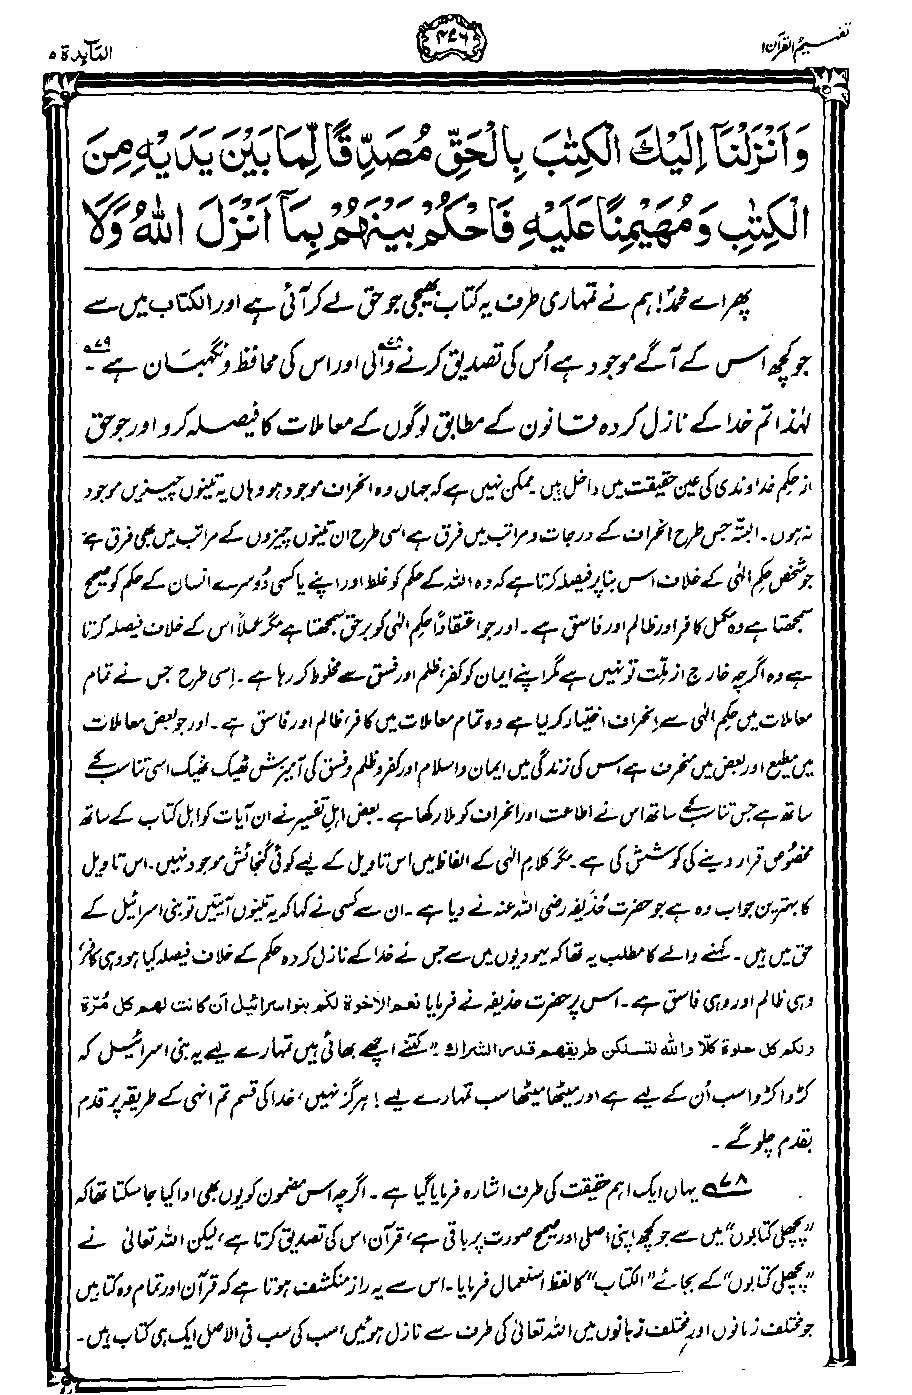 تفہیم القرآن ۱
۴۷۶
المآئدۃ ۵
وَاَنْزَلْنَاۤ اِلَيْكَ الْكِتٰبَ بِالْحَقِّ مُصَدِّقًا لِّمَا بَيْنَ يَدَيْهِ مِنَ
الْكِتٰبِ وَمُهَيْمِنًا عَلَيْهِ فَاحْكُمْ بَيْنَهُمْ بِمَاۤ اَنْزَلَ اللّٰهُ وَلَا
پھر اے محمدؐ! ہم نے تمہاری طرف یہ کتاب بھیجی جو حق لے کر آئی ہے اور الکتاب میں سے
جو کچھ اس کے آگے موجود ہے اُس کی تصدیق کرنے والی ۷۸ اور اس کی محافظ و نگہبان ہے ۷۹۔
لہٰذا تم خدا کے نازل کردہ قانون کے مطابق لوگوں کے معاملات کا فیصلہ کرو اور جو حق
از حکم خداوندی کی عین حقیقت میں داخل ہیں۔ ممکن نہیں ہے کہ جہاں وہ انحراف موجود ہو وہاں یہ تینوں چیزیں موجود
نہ ہوں۔ البتہ جس طرح انحراف کے درجات و مراتب میں فرق ہے اسی طرح ان تینوں چیزوں کے مراتب میں بھی فرق ہے۔
جو شخص حکم الٰہی کے خلاف اس بنا پر فیصلہ کرتا ہے کہ وہ اللہ کے حکم کو غلط اور اپنے یا کسی دُوسرے انسان کے حکم کو صحیح
سمجھتا ہے وہ مکمل کافر اور ظالم اور فاسق ہے۔ اور جو اعتقاداً حکم الٰہی کو برحق سمجھتا ہے مگر عملاً اس کے خلاف فیصلہ کرتا
ہے وہ اگرچہ خارج از ملّت تو نہیں ہے مگر اپنے ایمان کو کفر، ظلم اور فسق سے مخلوط کر رہا ہے۔ اِسی طرح جس نے تمام
معاملات میں حکم الٰہی سے انحراف اختیار کر لیا ہے وہ تمام معاملات میں کافر، ظالم اور فاسق ہے۔ اور جو بعض معاملات
میں مطیع اور بعض میں منحرف ہے اس کی زندگی میں ایمان و اسلام اور کفر و ظلم و فسق کی آمیزش ٹھیک ٹھیک اسی تناسب کے
ساتھ ہے جس تناسب کے ساتھ اس نے اطاعت اور انحراف کو ملا رکھا ہے۔ بعض اہلِ تفسیر نے ان آیات کو اہل کتاب کے ساتھ
مخصُوص قرار دینے کی کوشش کی ہے۔ مگر کلامِ الٰہی کے الفاظ میں اس تاویل کے لیے کوئی گنجائش موجود نہیں۔ اس تاویل
کا بہترین جواب وہ ہے جو حضرت حُذَیفہ رضی اللہ عنہ نے دیا ہے۔ ان سے کسی نے کہا کہ یہ تینوں آیتیں تو بنی اسرائیل کے
حق میں ہیں۔ کہنے والے کا مطلب یہ تھا کہ یہودیوں میں سے جس نے خدا کے نازل کردہ حکم کے خلاف فیصلہ کیا ہو وہی کافر،
وہی ظالم اور وہی فاسق ہے۔ اس پر حضرت حذیفہ نے فرمایا نعم الاخوۃ لکم بنو اسرائیل اَن کانت لھم کل مُرّۃ
ولکم کل حلوۃ کلّا واللّٰہ لتسلکن طریقھم قدر الشراک "کتنے اچھے بھائی ہیں تمہارے لیے یہ بنی اسرائیل کہ
کڑوا کڑوا سب اُن کے لیے ہے اور میٹھا میٹھا سب تمہارے لیے! ہرگز نہیں، خدا کی قسم تم انہی کے طریقہ پر قدم
بقدم چلو گے۔
۷۸ یہاں ایک اہم حقیقت کی طرف اشارہ فرمایا گیا ہے۔ اگرچہ اس مضمون کو یوں بھی ادا کیا جا سکتا تھا کہ
"پچھلی کتابوں" میں سے جو کچھ اپنی اصلی اور صحیح صورت پر باقی ہے، قرآن اس کی تصدیق کرتا ہے، لیکن اللہ تعالیٰ نے
"پچھلی کتابوں" کے بجائے "الکتاب" کا لفظ استعمال فرمایا۔ اس سے یہ راز منکشف ہوتا ہے کہ قرآن اور تمام وہ کتابیں
جو مختلف زمانوں اور مختلف زبانوں میں اللہ تعالیٰ کی طرف سے نازل ہوئیں، سب کی سب فی الاصل ایک ہی کتاب ہیں۔